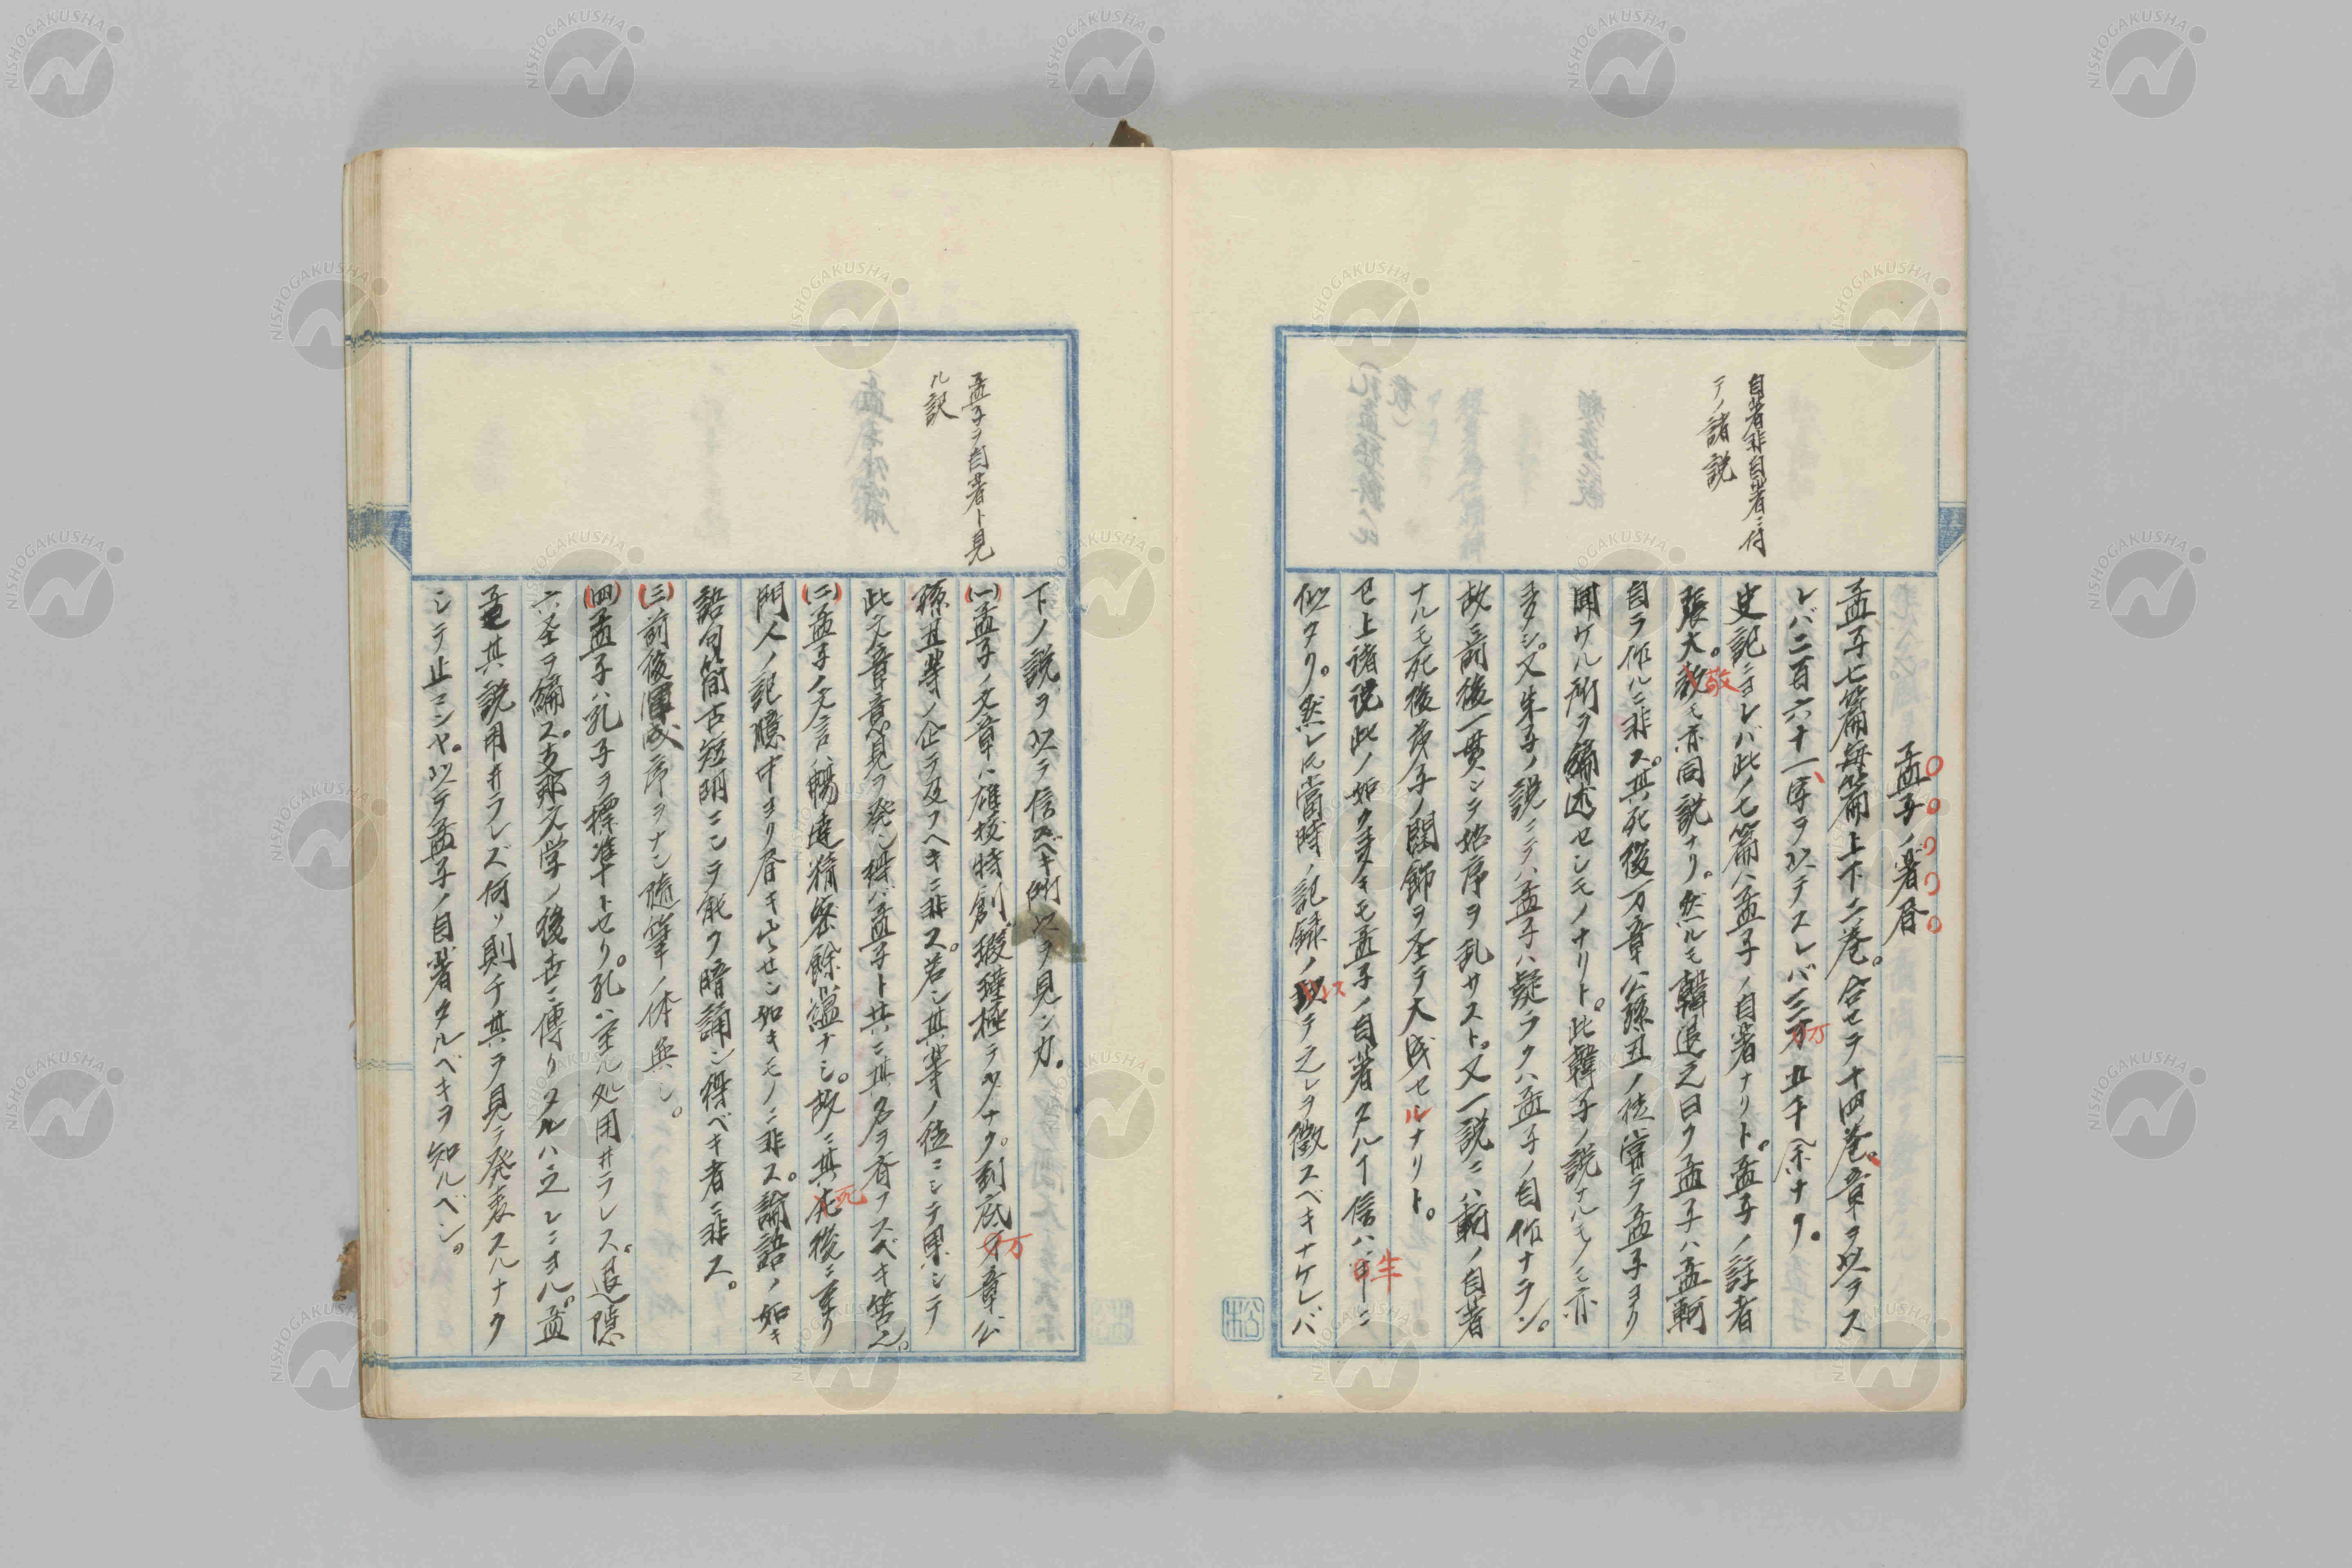 自著非自著ニ付
テノ諸説
孟子ノ著書
孟子七篇毎篇上下二巻。合セテ十四巻。章ヲ以テス
レバ二百六十一、字ヲ以テスレバ三万五千余ナリ。
史記ニヨレバ此ノ七篇ハ孟子ノ自著ナリト。孟子ノ註者
張大敬モ亦同説ナリ。然ルモ韓退之曰ク孟子ハ孟軻
自ラ作ルニ非ス。其死後万章公孫丑ノ徒嘗テ孟子ヨリ
聞ケル所ヲ編述セシモノナリト。此韓子ノ説ナルモノモ亦
多クシ。又朱子ノ説ニテハ孟子ハ疑ラクハ孟子ノ自作ナラン。
故ニ前後一貫シテ始序ヲ乱サスト。又一説ニハ軻ノ自著
ナルモ死後茂子ノ閏飾ヲ至テ大成セルナリト。
已上諸説此ノ如ク多キモ孟子ノ自著タルヿ信ハ半ニ
似タリ。然レ𪜈當時ノ記録ノ以テ之レヲ徴スベキナケレバ
孟子ヲ自著ト見
ル説
下ノ説ヲ以テ信スベキ所以ヲ見ンカ。
(一)孟子ノ文章ハ雄抜特創瑕瑾極テ少ナク。到底万章公
孫丑等ノ企テ及フヘキニ非ス。若シ其等ノ徒ニシテ果シテ
此文章意見ヲ発シ得バ孟子ト共ニ其名ヲ斉フスベキ筈也。
(二)孟子ノ文言ハ暢達精密餘温ナシ。故ニ其死後ニ至リ
門人ノ記臆中ヨリ書キ出セシ如キモノニ非ス。論語ノ如キ
語句簡古短明ニシテ能ク暗誦シ得ベキ者ニ非ス。
(三)前後渾成序ヲナシ随筆ノ体無シ。
(四)孟子ハ孔子ヲ標準トセリ。孔ハ至ル処用ヰラレス。退隠
六圣ヲ編ス。支那文学ノ後世ニ傳リタルハ之レニヨル。孟
其説用ヰラレズ何ソ則チ其ヲ見テ発表スルナク
シテ止マンヤ。以テ孟子ノ自著タルベキヲ知ルベシ。
松
NISHOGAKUSHA